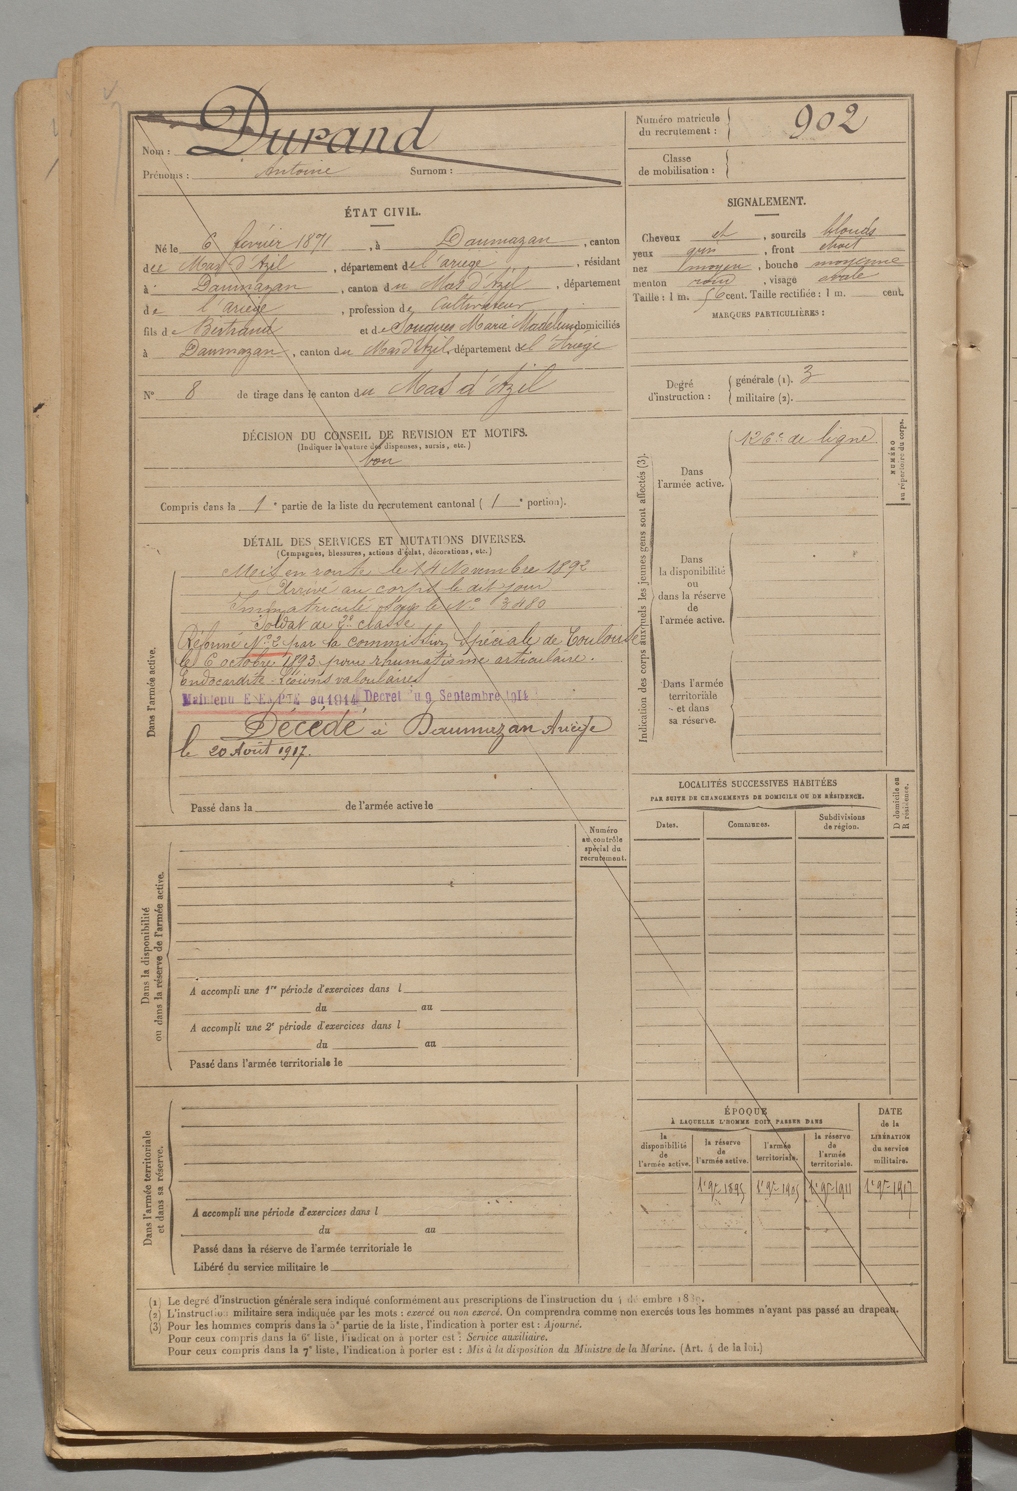 Durand
Nom :
Prénoms : Antoine Surnom :
Numéro matricule du recrutement : 902
Classe de mobilisation :
ÉTAT CIVIL.
Né le 6 février 1871, à Daumazan, canton
du Mas d'Azil, département de l'ariège, résidant
à Daumazan, canton du Mas d'Azil, département
de l'ariège, profession de Cultivateur
fils de Bertrand et de Souques Marie Madeleine domiciliés
à Daumazan, canton du Mas d'Azil, département de l'Ariège
N° 8 de tirage dans le canton du Mas d'Azil
SIGNALEMENT.
Cheveux et, sourcils blonds
yeux gris, front étroit
nez moyen, bouche moyenne
menton rond, visage ovale
Taille : 1 m. 56 cent. Taille rectifiée : 1 m. cent.
MARQUES PARTICULIÈRES :
Degré d'instruction :
générale (1). 3
militaire (2).
DÉCISION DU CONSEIL DE REVISION ET MOTIFS.
(Indiquer la nature des dispenses, sursis, etc.)
bon
Compris dans la 1e partie de la liste du recrutement cantonal ( 1e portion).
DÉTAIL DES SERVICES ET MUTATIONS DIVERSES.
(Campagnes, blessures, actions d'éclat, décorations, etc.)
Dans l'armée active.
Mis en route le 14 Novembre 1892
Arrivé au corps le dit jour
Immatriculé sous le N° 3480
Soldat de 2e classe
Réformé N° 2 par la commission Spéciale de Toulouse
le 6 octobre 1893 pour rhumatisme articulaire.
Endocardite - Lésions valvulaires
Maintenu EXEMPTÉ en 1914 Décret du 9 Septembre 1914
Décédé à Daumazan Ariège
le 20 Août 1917.
Passé dans la de l'armée active le
Indication des corps auxquels les jeunes gens sont affectés (3).
Dans l'armée active.
126e de ligne
NUMÉRO au répertoire du corps.
Dans la disponibilité ou dans la réserve de l'armée active.
Dans l'armée territoriale et dans sa réserve.
LOCALITÉS SUCCESSIVES HABITÉES
PAR SUITE DE CHANGEMENTS DE DOMICILE OU DE RÉSIDENCE.
Dates. Communes. Subdivisions de région.
D domicile ou R résidence.
Numéro au contrôle spécial du recrutement.
Dans la disponibilité ou dans la réserve de l'armée active.
A accompli une 1re période d'exercices dans l
du au
A accompli une 2e période d'exercices dans l
du au
Passé dans l'armée territoriale le
Dans l'armée territoriale et dans sa réserve.
A accompli une période d'exercices dans l
du au
Passé dans la réserve de l'armée territoriale le
Libéré du service militaire le
ÉPOQUE
À LAQUELLE L'HOMME DOIT PASSER DANS
la disponibilité de l'armée active.
la réserve de l'armée active.
l'armée territoriale.
la réserve de l'armée territoriale.
DATE de la LIBÉRATION du service militaire.
1er 9bre 1895 1er 9bre 1905 1er 9bre 1911 1er 9bre 1917
(1) Le degré d'instruction générale sera indiqué conformément aux prescriptions de l'instruction du
(2) L'instruction militaire sera indiquée par les mots : exercé ou non exercé. On comprendra comme non exercés tous les hommes n'ayant pas passé au drapeau.
(3) Pour les hommes compris dans la 5e partie de la liste, l'indication à porter est : Ajourné.
Pour ceux compris dans la 6e liste, l'indication à porter est : Service auxiliaire.
Pour ceux compris dans la 7e liste, l'indication à porter est : Mis à la disposition du Ministre de la Marine. (Art. 4 de la loi.)